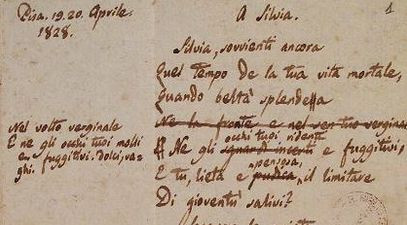 Pisa. 19. 20. Aprile.
1828.
A Silvia.
1
Silvia, sovvienti ancora
Quel tempo de la tua vita mortale,
Quando beltà splendea
Ne la fronte e nel sen tuo verginale
occhi tuoi ridenti
E Ne gli sguardi incerti e fuggitivi,
pensosa,
E tu, lieta e pudica, il limitare
Di gioventù salivi?
Nel volto verginale
E ne gli occhi tuoi molli
e fuggitivi. dolci, va=
ghi.